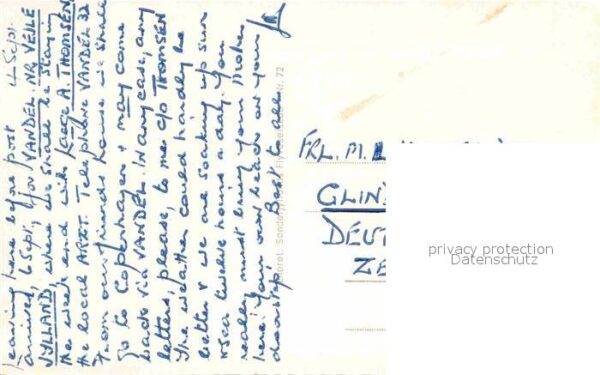 Leaving here before post 4 Sept.
arrives, 6 Sept., for VANDEL, NR. VEJLE
JYLLAND, where we shall be staying
the week end with Læge A. THOMSEN
the local ARZT. Telephone VANDEL 32
From our friends house we shall
go to Copenhagen & may come
back via VANDEL. In any case, any
letters, please, to me c/o THOMSEN
The weather could hardly be
better & we are soaking up sun
twelve hours a day. You
really must bring your
here: your own beach on your
doorstep. Best to all
Eneret. Sønderjyllands N. 72
FRL. M.
GLIN
DEUT
ZE
privacy protection
Datenschutz